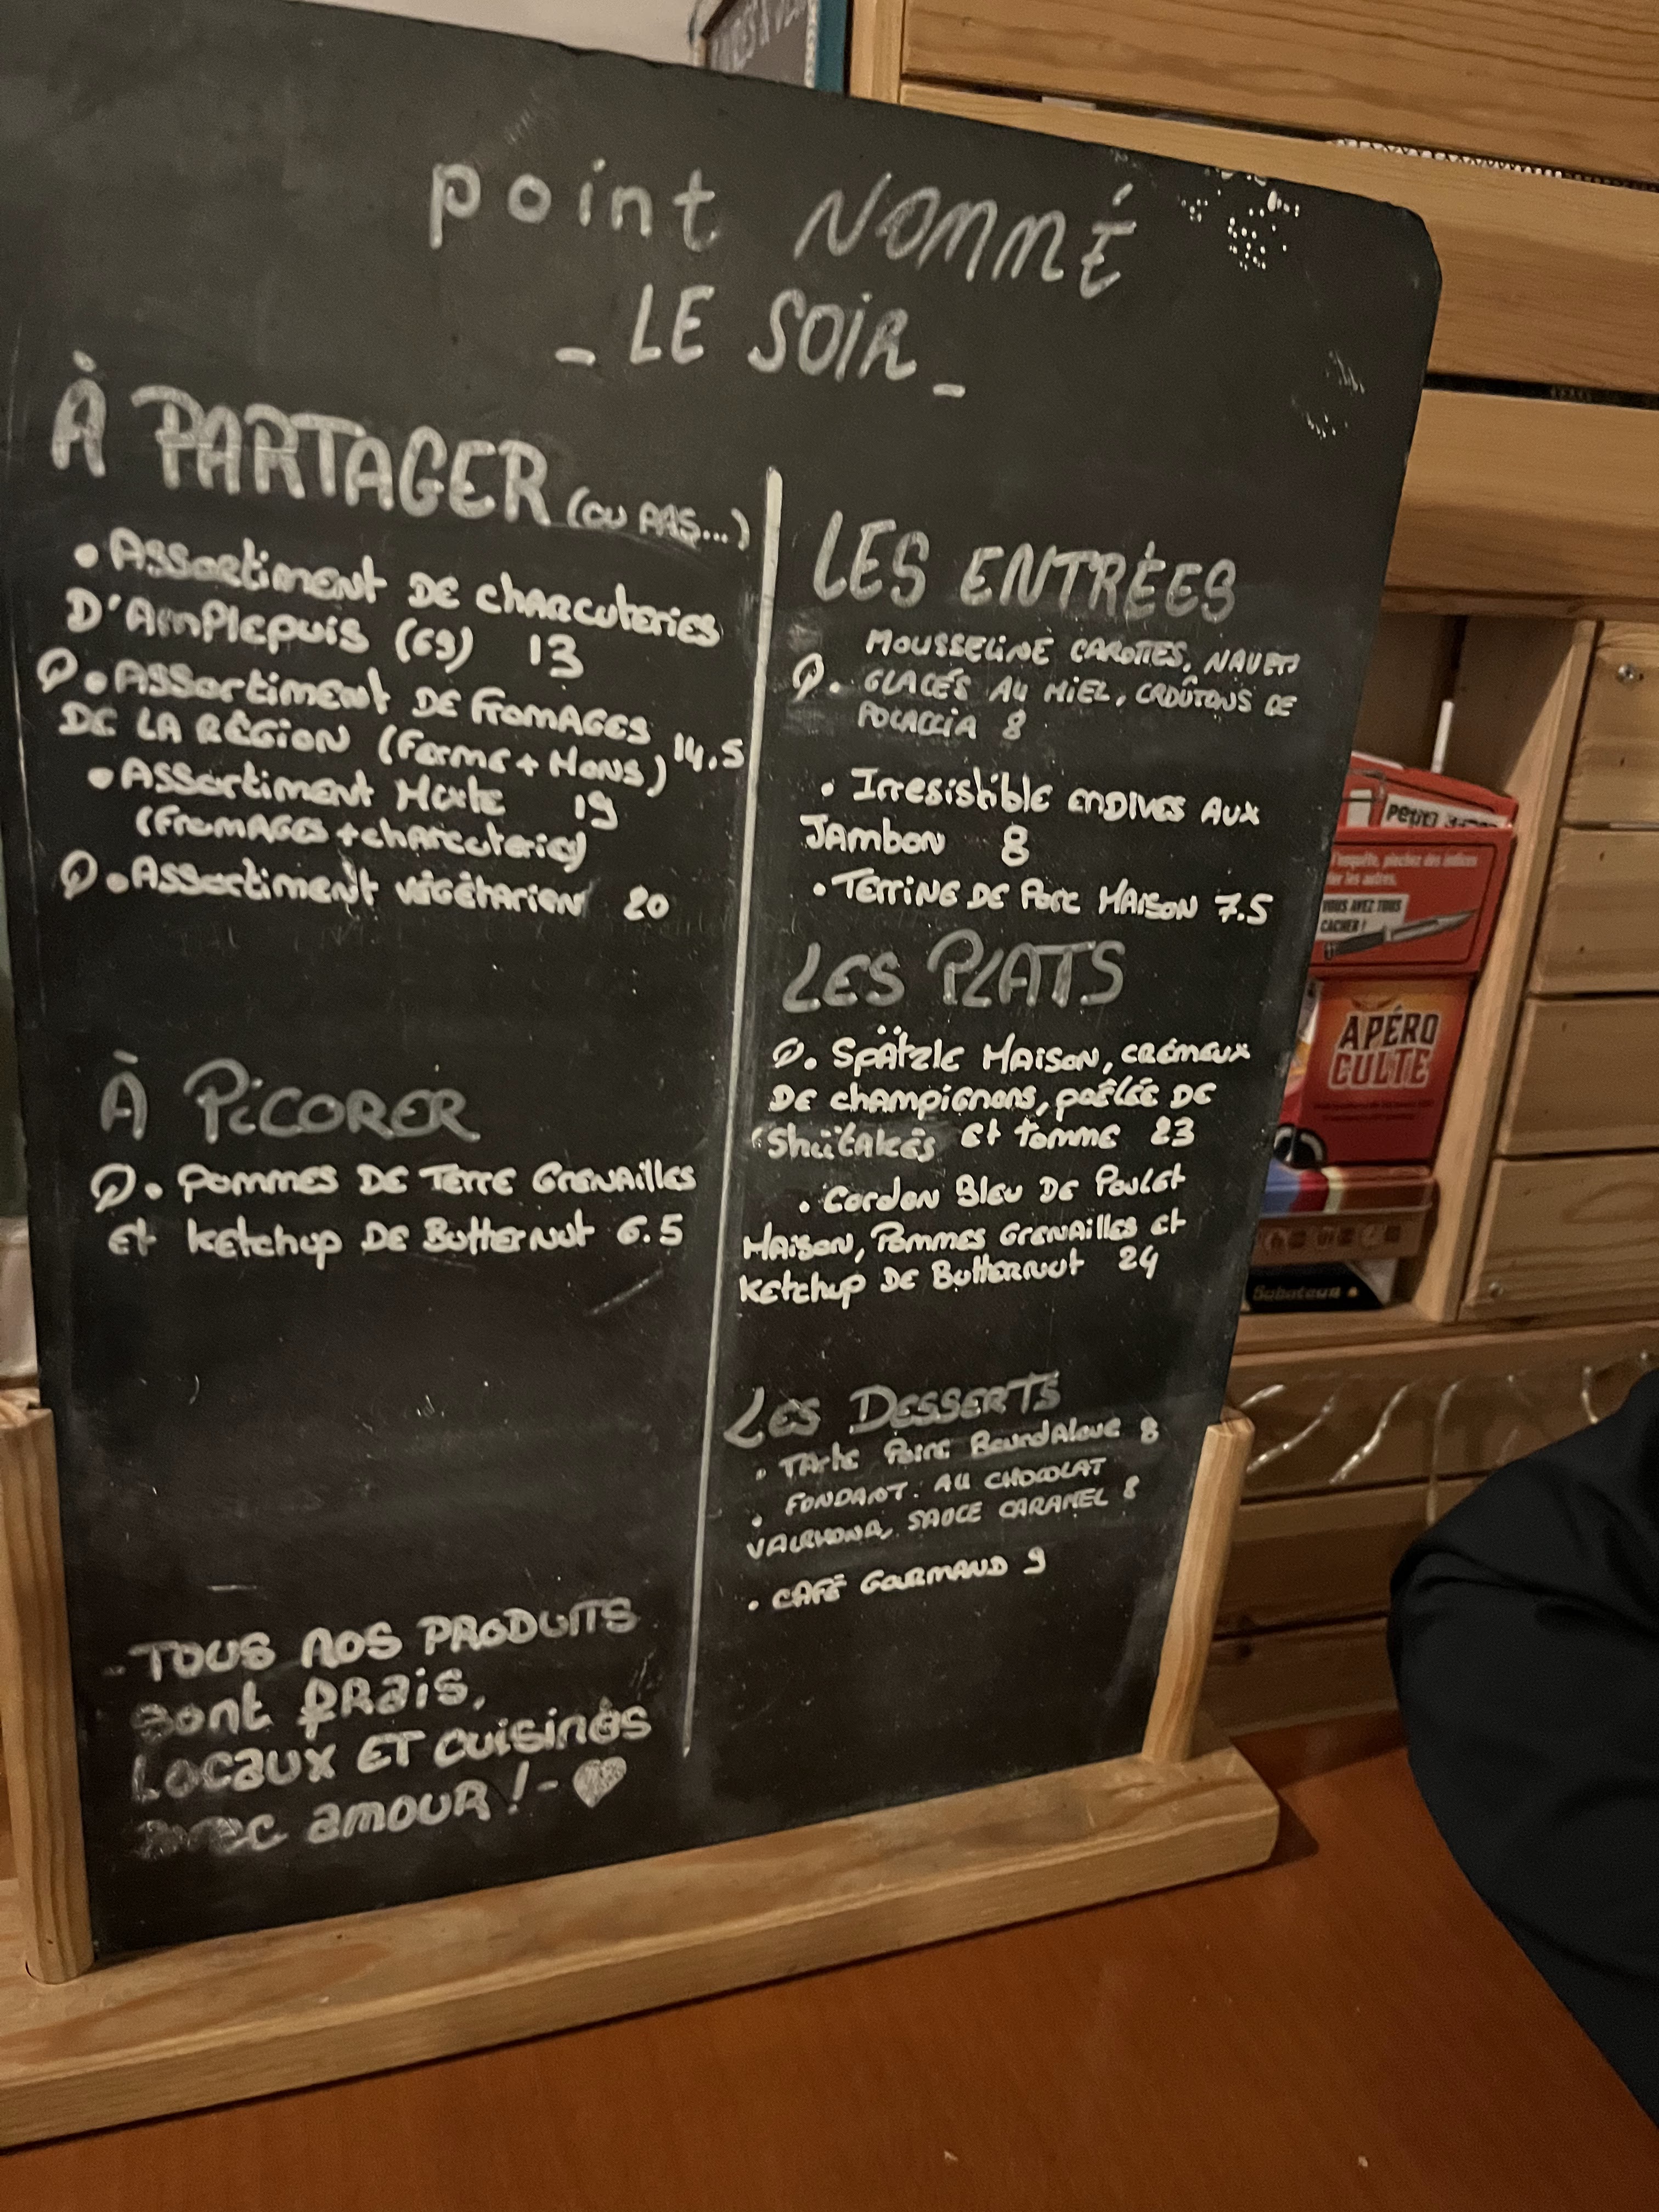 point NOMMÉ
- LE SOIR -
À PARTAGER (OU PAS...)
• Assortiment DE charcuteries
D'Amplepuis (69) 13
• Assortiment DE fromAGES
DE LA RÉGION (Ferme + Mons) 14,5
• Assortiment Mixte 19
(FromAGES + charcuteries)
• Assortiment végétarien 20
À PiCORER
• Pommes DE Terre Grenailles
Et ketchup DE Butternut 6.5
- TOUS NOS PRODUITS
sont FRais,
Locaux ET cuisinés
avec amour ! - ♥
LES ENTRÉES
MOUSSELINE CAROTTES, NAVETS
• GLACÉS AU MIEL, CROÛTONS DE
FOCACCIA 8
• Irresistible endives AUX
Jambon 8
• TERRINE DE Porc MAISON 7.5
LES PLATS
• Spätzle MAison, crémeux
DE champignons, poêlée DE
Shiitakés Et tomme 23
• Cordon Bleu DE Poulet
Maison, Pommes Grenailles et
Ketchup DE Butternut 24
LES DESSERTS
• TArte Poire BourdAloue 8
• FONDANT AU CHOCOLAT
VALRHONA, SAUCE CARAMEL 8
• CAFÉ GouRMAND 9
PETITS
l'enquête, piochez des indices
les autres.
VOUS AVEZ TOUS
CACHER !
APÉRO
CULTE
Saboteur